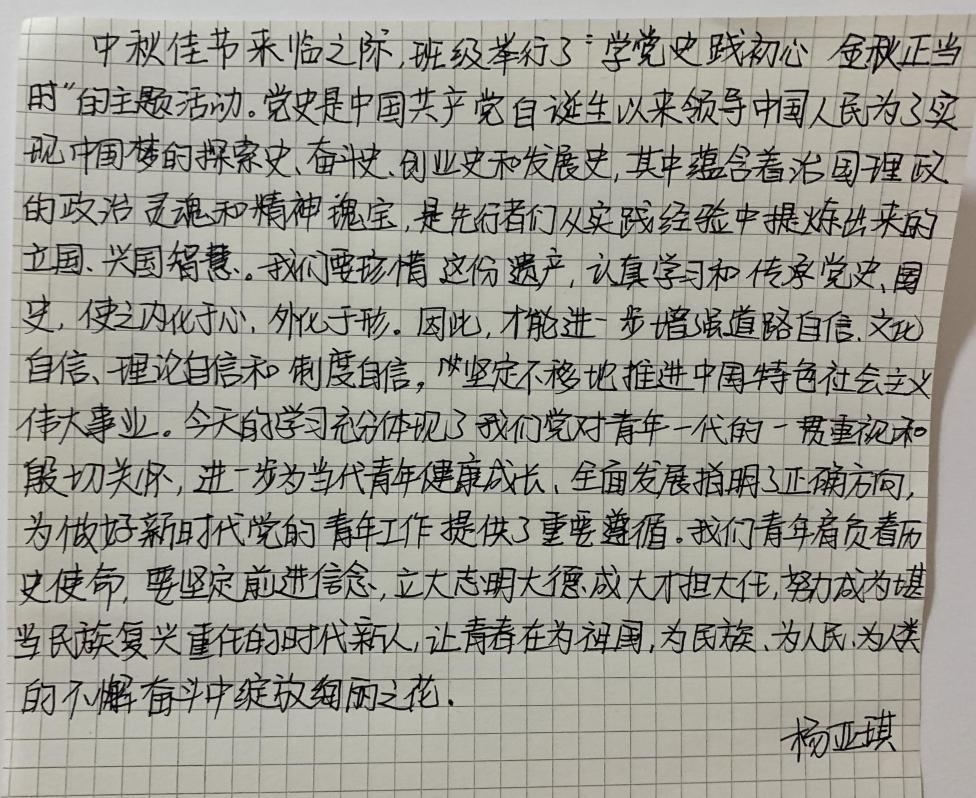 中秋佳节来临之际,班级举行了“学党史践初心 金秋正当
时”的主题活动。党史是中国共产党自诞生以来领导中国人民为了实
现中国梦的探索史、奋斗史、创业史和发展史,其中蕴含着治国理政
的政治灵魂和精神瑰宝,是先行者们从实践经验中提炼出来的
立国、兴国智慧。我们要珍惜这份遗产,认真学习和传承党史、国
史,使之内化于心,外化于形。因此,才能进一步增强道路自信、文化
自信、理论自信和制度自信,坚定不移地推进中国特色社会主义
伟大事业。今天的学习充分体现了我们党对青年一代的一贯重视和
殷切关怀,进一步为当代青年健康成长、全面发展指明了正确方向,
为做好新时代党的青年工作提供了重要遵循。我们青年肩负着历
史使命,要坚定前进信念,立大志明大德成大才担大任,努力成为堪
当民族复兴重任的时代新人,让青春在为祖国,为民族、为人民、为人类
的不懈奋斗中绽放绚丽之花.
杨亚琪